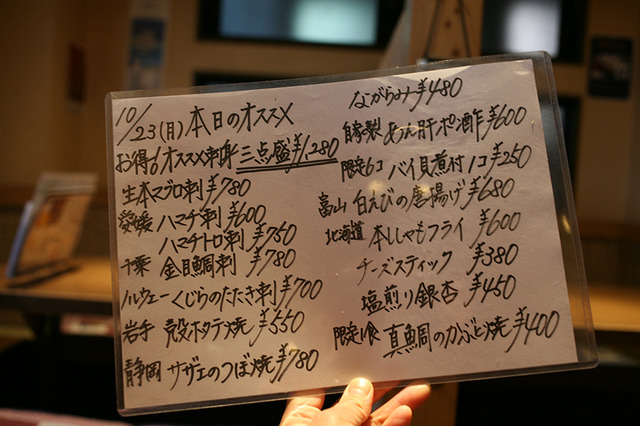 10/23(月)本日のオススメ
お得6オススメ刺身三点盛¥1,280
生本マグロ刺¥780
愛媛 ハマチ刺¥600
ハマチトロ刺¥750
千葉 金目鯛刺¥780
ノルウェーくじらのたたき刺¥700
岩手 殻ホタテ焼¥550
静岡 サザエのつぼ焼¥780
ながらみ¥480
自家製 あん肝ポン酢¥600
限定6コ バイ貝煮付1コ¥250
富山 白えびの唐揚げ¥680
北海道 本ししゃもフライ¥600
チーズスティック ¥380
塩煎り銀杏 ¥450
限定1食 真鯛のかぶと焼¥400